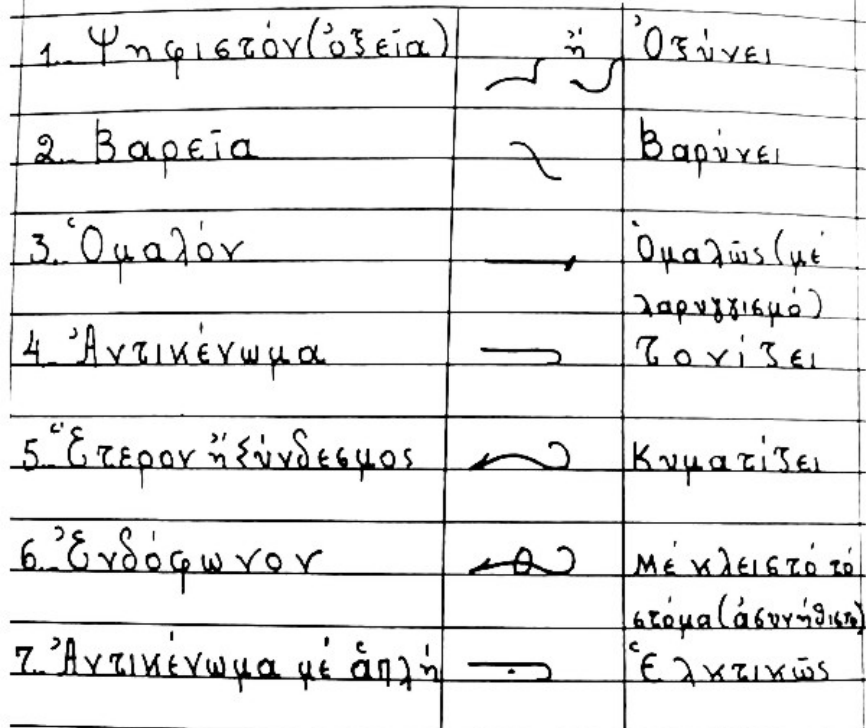 1. Ψηφιστόν (ὀξεία) ἤ Ὀξύνει
2. Βαρεῖα Βαρύνει
3. Ὁμαλόν Ὁμαλῶς (μέ
λαρυγγισμό)
4. Ἀντικένωμα Τονίζει
5. Ἕτερον ἤ Σύνδεσμος Κυματίζει
6. Ἐνδόφωνον Μέ κλειστό τό
στόμα (ἀσυνήθιστο)
7. Ἀντικένωμα μέ ἁπλή Ἑλκτικῶς